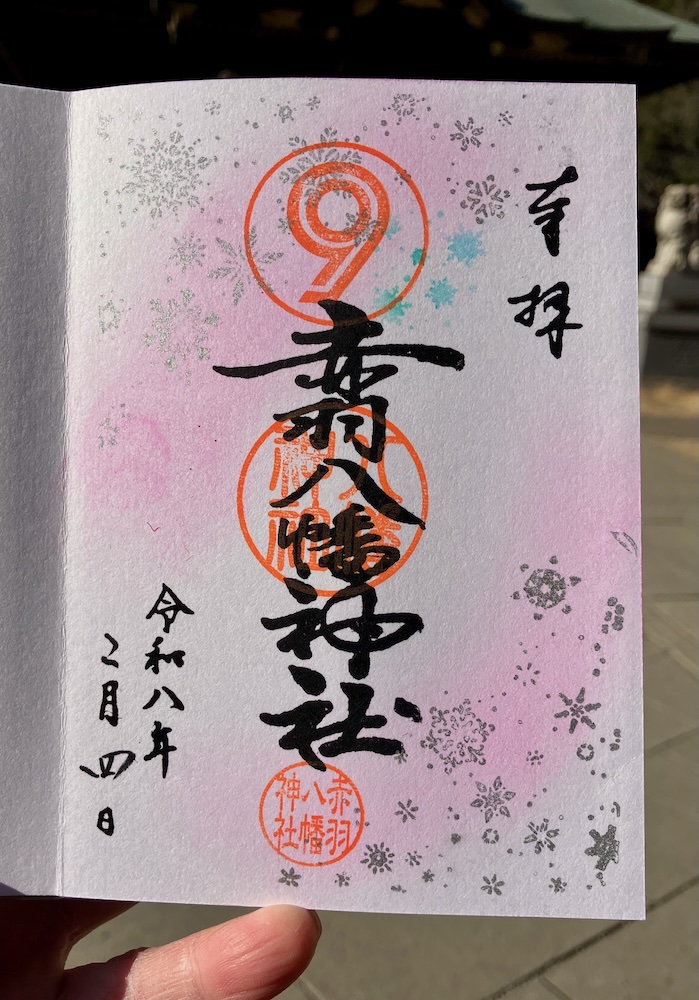 奉拝
9
赤羽八幡神社
八幡神社
赤羽八幡神社
令和八年
二月四日